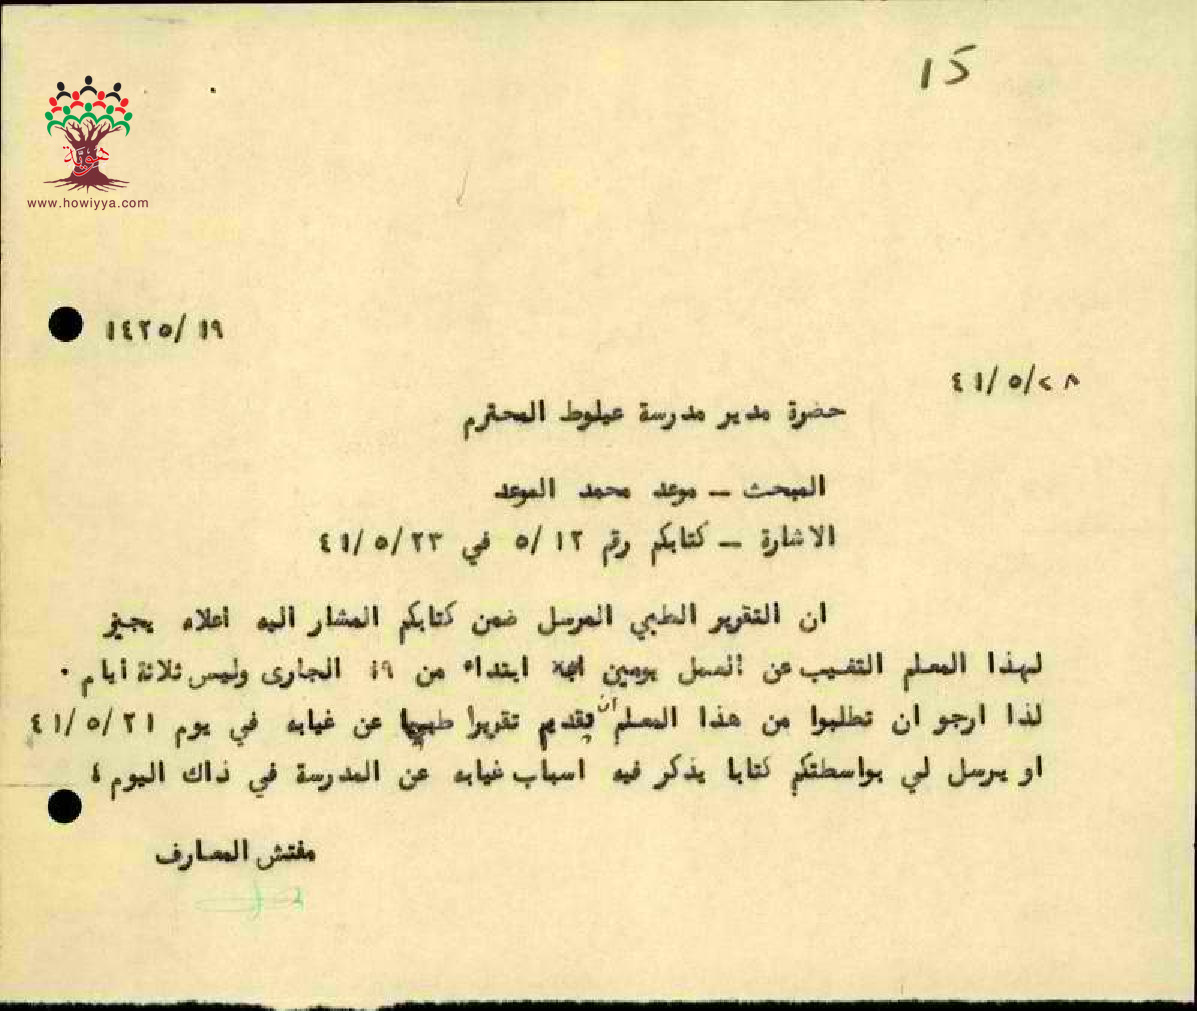 15
هوية
www.howiyya.com
١٤٢٥/ ١٩
٤١/٥/٢٨
حضرة مدير مدرسة عيلوط المحترم
المبحث – موعد محمد الموعد
الاشارة – كتابكم رقم ٥/١٢ في ٤١/٥/٢٣
ان التقرير الطبي المرسل ضمن كتابكم المشار اليه اعلاه يجيز
لهذا المعلم التغيب عن العمل يومين ابتداء من ١٩ الجارى وليس ثلاثة أيام ٠
لذا ارجو ان تطلبوا من هذا المعلم ان يقدم تقريرا طبيا عن غيابه في يوم ٤١/٥/٢١
او يرسل لي بواسطتكم كتابا يذكر فيه اسباب غيابه عن المدرسة في ذاك اليوم ٤
مفتش المعارف